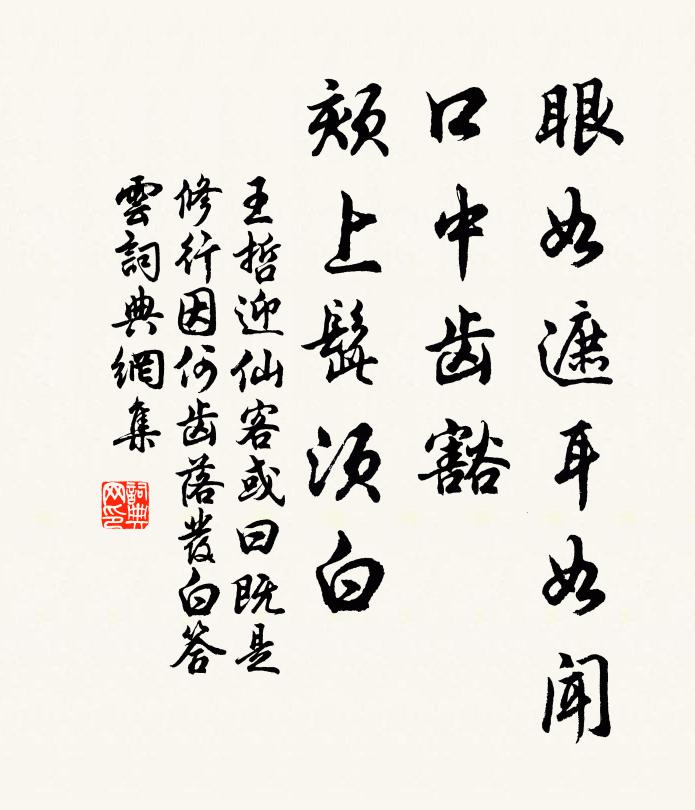 眼如遮耳如闻
口中齿豁
颊上髭须白
王哲迎仙客或曰既是
修行因何齿落发白答
雲詞典網集
詞典